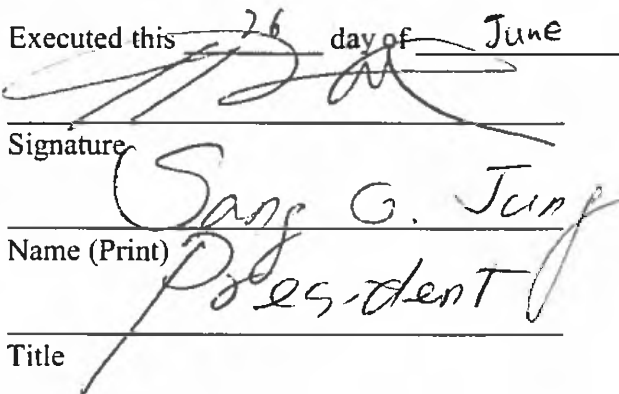 Executed this 26 day of June
Signature
Sang G. Jung
Name (Print)
President
Title